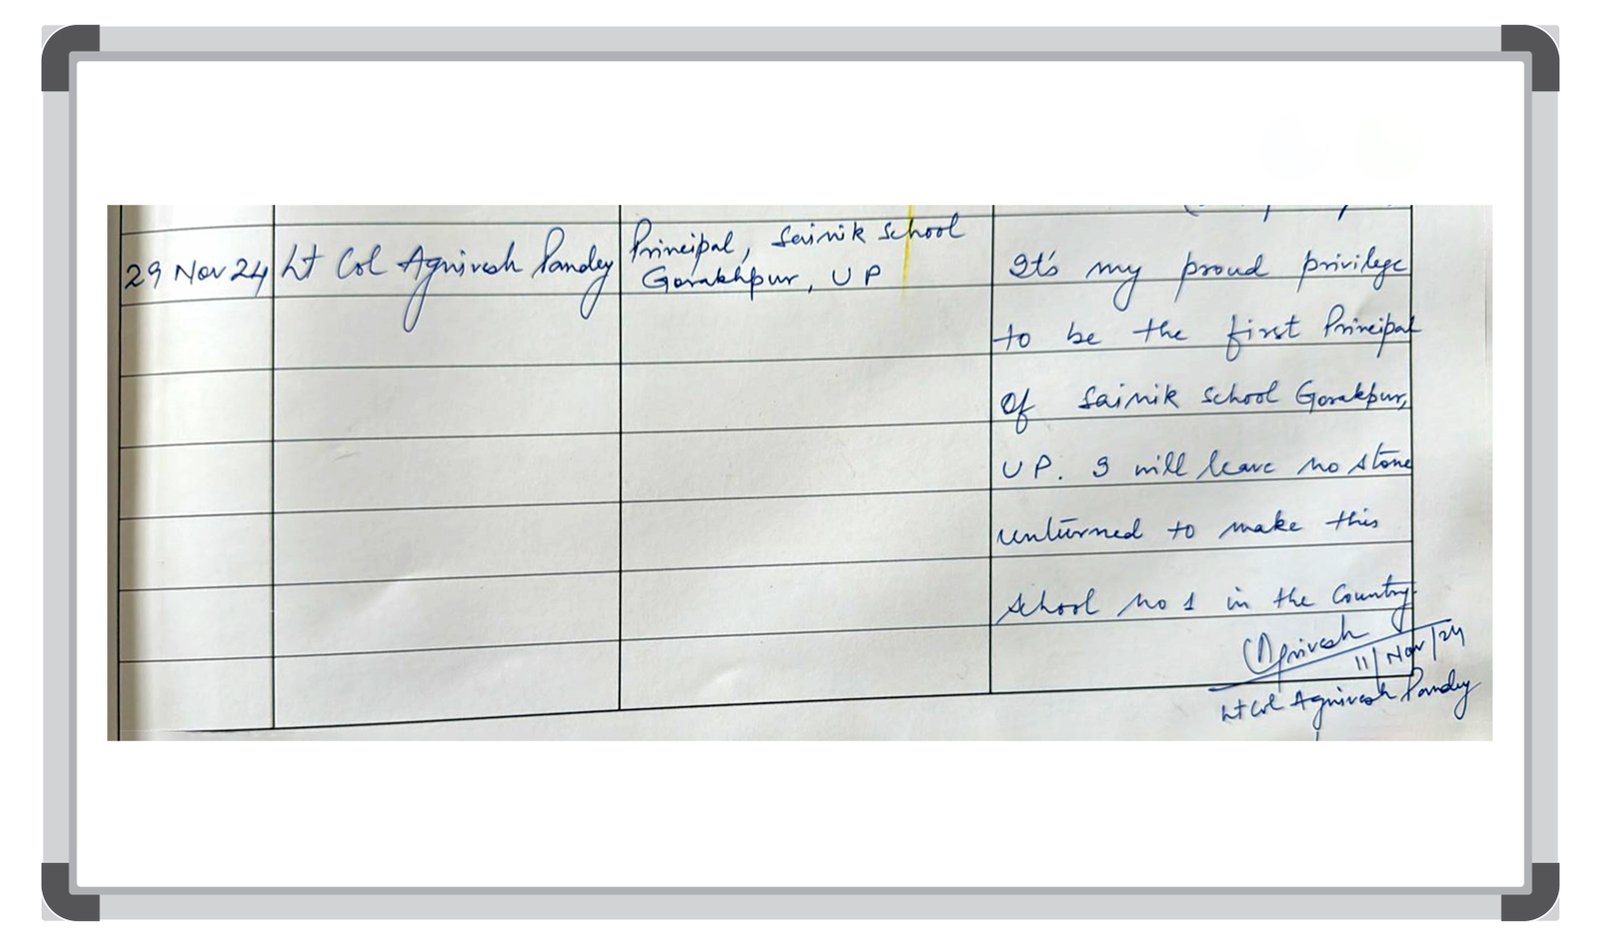 29 Nov 24
Lt Col Agnivesh Pandey
Principal, Sainik School
Gorakhpur, UP
It's my proud privilege
to be the first Principal
of Sainik School Gorakpur,
UP. I will leave no stone
unturned to make this
school no 1 in the Country.
Agnivesh
11/Nov/24
Lt Col Agnivesh Pandey